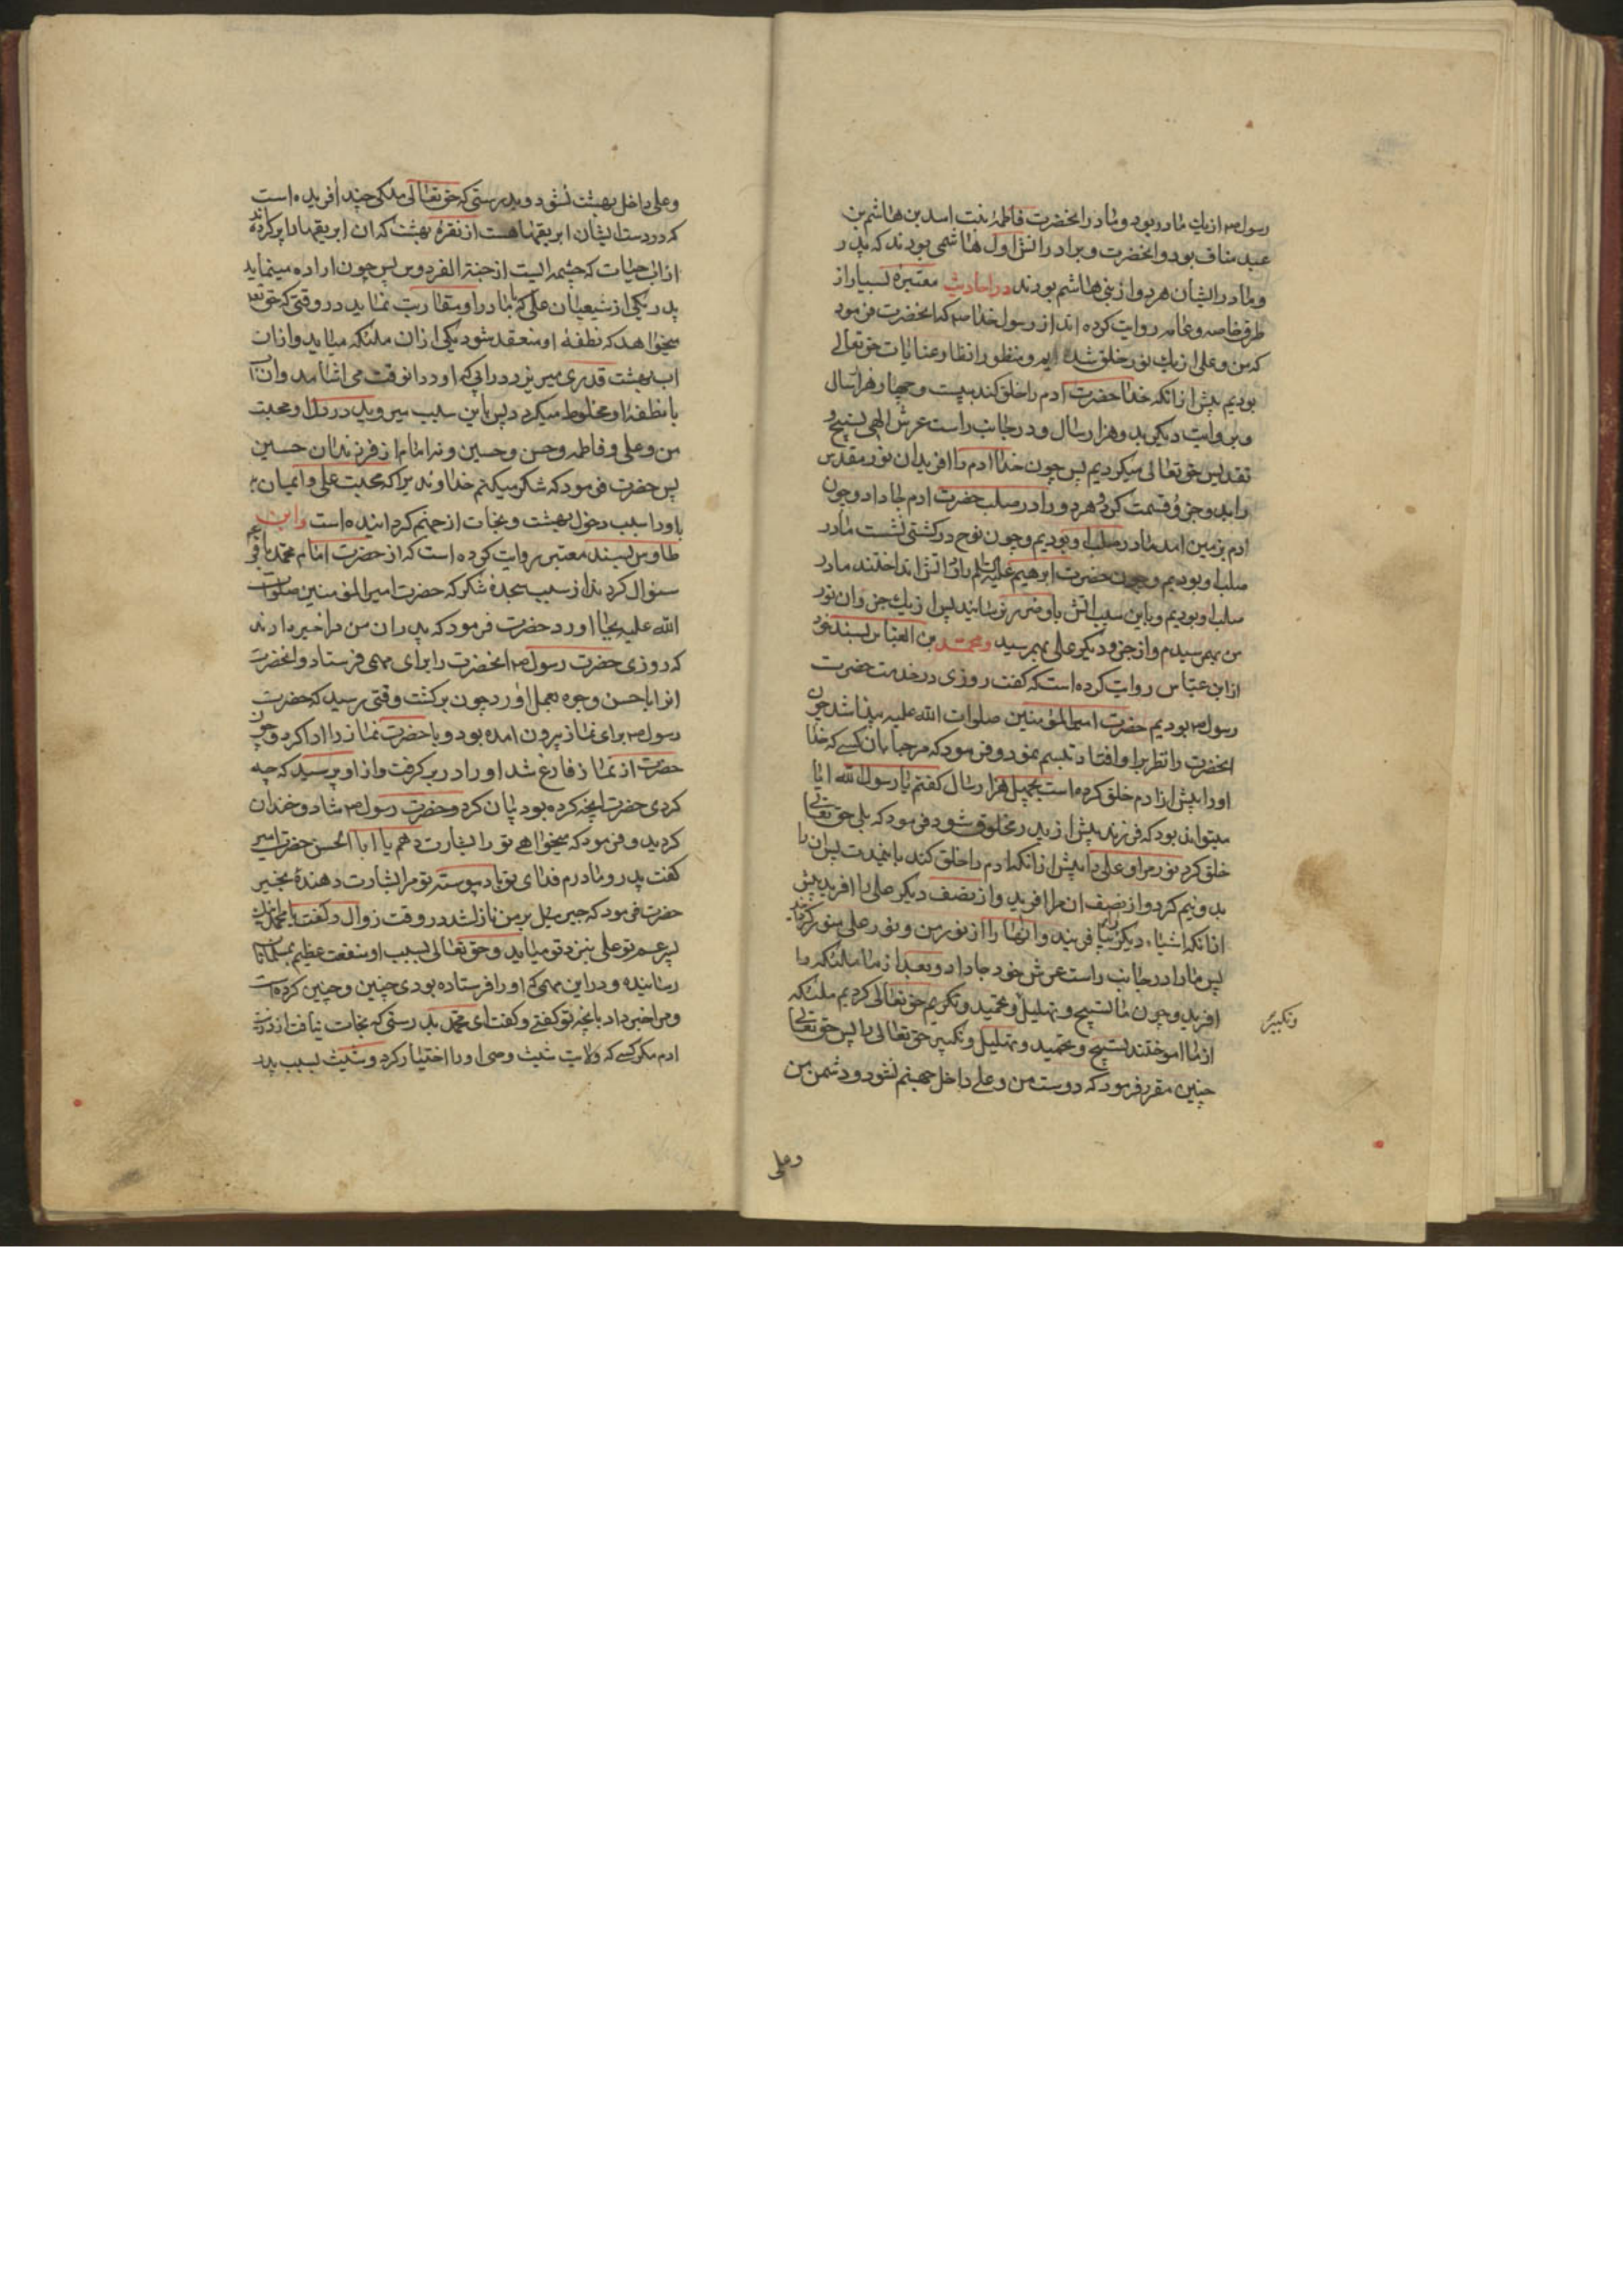 رسول ص از یك مادر بود و مادر انحضرت فاطمهٔ بنت اسد بن هاشم بن
عبد مناف بود و انحضرت و برادرانش اول هاشمی بودند که پدر
و مادر ایشان هر دو از بنی هاشم بودند در احادیث معتبرهٔ بسیار از
طرق خاصه و عامه روایت کرده اند از رسول خدا ص که انحضرت فرمود
که من و علی از یك نور خلق شده ایم و منظور انظار و عنایات حق تعالی
بودیم پیش از انکه خدا حضرت ادم را خلق کند بیست و چهار هزار سال
و بروایت دیکر بدو هزار سال و در جانب راست عرش الهی تسبیح و
تقدیس حق تعالی میکردیم پس چون خدا ادم را افرید ان نور مقدس
را بدو جزؤ قسمت کرد و هر دو را در صلب حضرت ادم جا داد و چون
ادم بزمین امد ما در صلب او بودیم و چون نوح در کشتی نشست ما در
صلب او بودیم و چون حضرت ابرهیم علیه السلم را در اتش انداختند ما در
صلب او بودیم و باین سبب اتش باو ضرر نرسانید پس از یك جزؤ ان نور
من بهم رسیدم و از جزؤ دیکر علی بهم رسید و محمد بن العباس بسند خود
از ابن عباس روایت کرده است که کفت روزی در خدمت حضرت
رسول ص بودیم حضرت امیر المؤمنین صلوات الله علیه پیدا شد چون
انحضرت را نظر بر او افتاد تبسم نمود و فرمود که مرحبا بان کسی که خدا
او را پیش از ادم خلق کرده است بچهل هزار سال کفتم یا رسول الله ایا
میتواند بود که فرزند پیش از پدر مخلوق شود فرمود که بلی حق تعالی
خلق کرد نور مرا و علی را پیش از انکه ادم را خلق کند باینمدت پس ان را
بدو نیم کرد و از نصف ان مرا افرید و از نصف دیکر علی را افرید پیش
از انکه اشیاء دیکر را بیافریند و انها را از نور من و نور علی منور کردانید
پس ما را در جانب راست عرش خود جا داد و بعد از ما ملئکه را
افرید و چون ما تسبیح و تهلیل و تحمید و تکریم حق تعالی کردیم ملئکه
و تکبیر
از ما اموختند تسبیح و تحمید و تهلیل و تکبیر حق تعالی را پس حق تعالی
چنین مقرر فرمود که دوست من و علی داخل جهنم نشود و دشمن من
و علی
و علی داخل بهشت نشود و بدرستی که حق تعالی ملکی چند افریده است
که در دست ایشان ابریقها هست از نقرهٔ بهشت که ان ابریقها را پر کرده اند
از اب حیات که چشمه ایست از جنة الفردوس پس چون اراده مینماید
پدر یکی از شیعیان علی که با مادر او مقاربت نماید در وقتی که حق تعالی
میخواهد که نطفهٔ او منعقد شود یکی از ان ملئکه میاید و از ان
اب بهشت قدری میریزد در ابی که او در انوقت می اشامد و ان اب
با نطفهٔ او مخلوط میکردد پس باین سبب میروید در دل او محبت
من و علی و فاطمه و حسن و حسین و نه امام از فرزندان حسین
پس حضرت فرمود که شکر میکنم خداوندیرا که محبت علی و ایمان
باو را سبب دخول بهشت و نجات از جهنم کردانیده است و ابن
طاوس بسند معتبر روایت کرده است که از حضرت امام محمد باقر ع
سئوال کردند از سبب سجدهٔ شکر که حضرت امیر المؤمنین صلوات
الله علیه بجا اورد حضرت فرمود که پدران من مرا خبر دادند
که روزی حضرت رسول ص انحضرت را برای مهمی فرستاد و انحضرت
انرا باحسن وجوه بعمل اورد چون برکشت وقتی رسید که حضرت
رسول ص برای نماز بیرون امده بود و با حضرت نماز را ادا کرد و چون
حضرت از نماز فارغ شد او را در بر کرفت و از او پرسید که چه
کردی حضرت انچه کرده بود بیان کرد و حضرت رسول ص شاد و خندان
کردید و فرمود که میخواهی تو را بشارت دهم یا ابا الحسن حضرت امیر
کفت پدر و مادرم فدای تو باد پیوسته تو مرا بشارت دهندهٔ بخیر
حضرت فرمود که جبرئیل بر من نازل شد در وقت زوال و کفت یا محمد اینک
پسر عم تو علی بنزد تو میاید و حق تعالی بسبب او منفعت عظیم بمسلمانان
رسانیده و در این مهمی که او را فرستاده بودی چنین و چنین کرده است
و مرا خبر داد بانچه تو کفتی و کفت ای محمد بدرستی که نجات نیافت از ذریت
ادم مکر کسی که ولایت شیث وصی او را اختیار کرد و شیث بسبب پدر